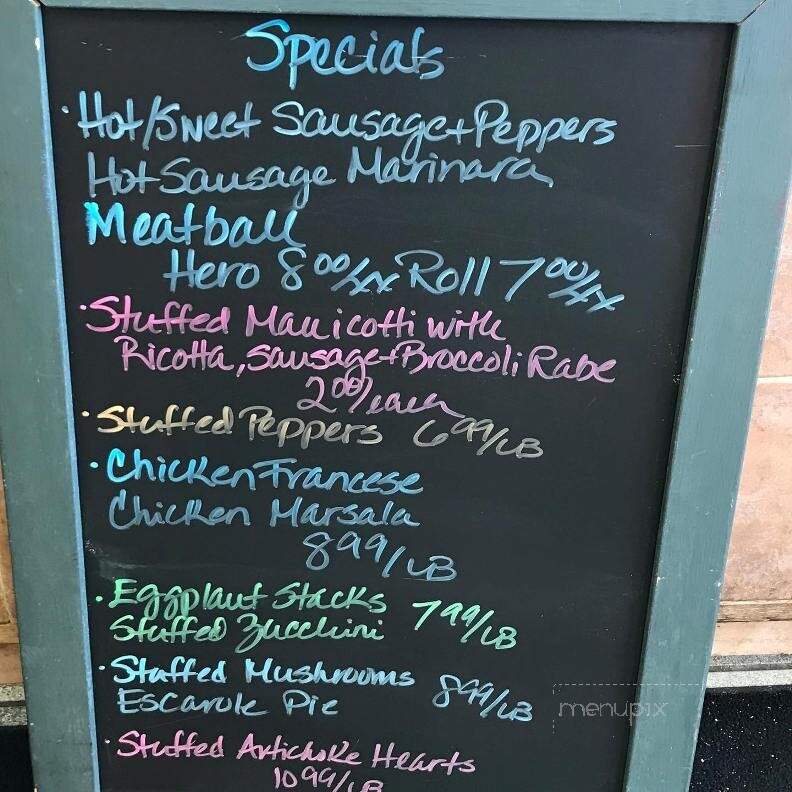 Specials
· Hot/Sweet Sausage + Peppers
Hot Sausage Marinara
Meatball
Hero 8 00/ Roll 7 00/
· Stuffed Manicotti with
Ricotta, Sausage + Broccoli Rabe
2 00/each
· Stuffed Peppers 6 99/LB
· Chicken Francese
Chicken Marsala
8 99/LB
· Eggplant Stacks 7 99/LB
Stuffed Zucchini
· Stuffed Mushrooms 8 99/LB
Escarole Pie
menupix
· Stuffed Artichoke Hearts
10 99/LB